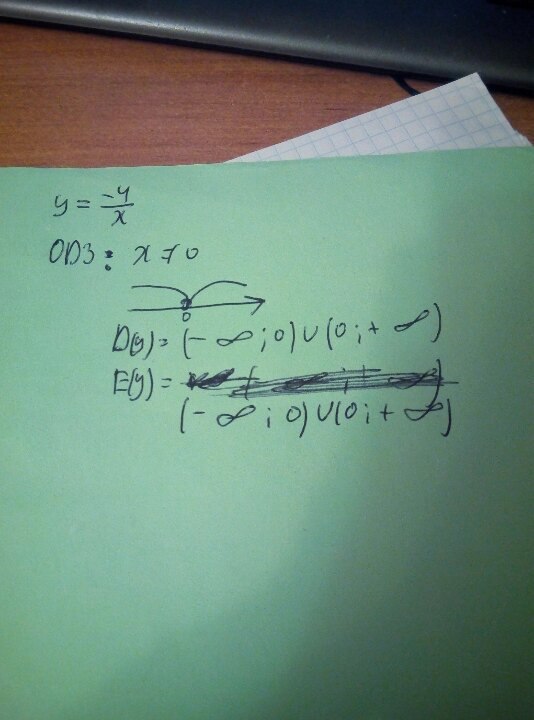 y = -4/x
ОДЗ: x ≠ 0
0
D(y) = (-∞; 0) ∪ (0; +∞)
E(y) =
(-∞; 0) ∪ (0; +∞)